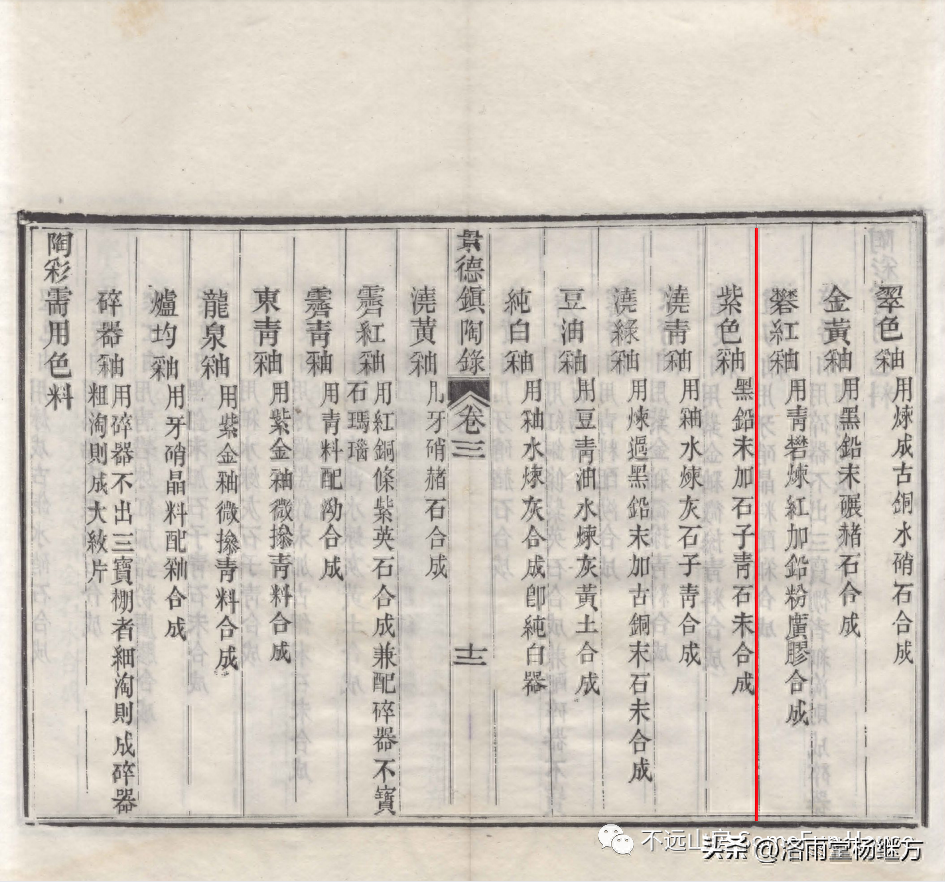 翠色釉用煉成古銅水硝石合成
金黃釉用黑鉛末碾赭石合成
礬紅釉用青礬煉紅加鉛粉廣膠合成
紫色釉黑鉛末加石子青石末合成
澆青釉用釉水煉灰石子青合成
澆綠釉用煉過黑鉛末加古銅末石末合成
豆油釉用豆青油水煉灰黃土合成
純白釉用釉水煉灰合成卽純白器
景德鎮陶錄 卷三 十二
澆黃釉用牙硝赭石合成
霽紅釉用紅銅條紫英石合成兼配碎器不寶
石瑪瑙
霽青釉用青料配泑合成
東青釉用紫金釉微摻青料合成
龍泉釉用紫金釉微摻青料合成
爐均釉用牙硝晶料配釉合成
碎器釉用碎器不出三寶棚者細淘則成碎器
粗淘則成大紋片
陶彩需用色料
不远山房
头条 @洛雨堂杨继方